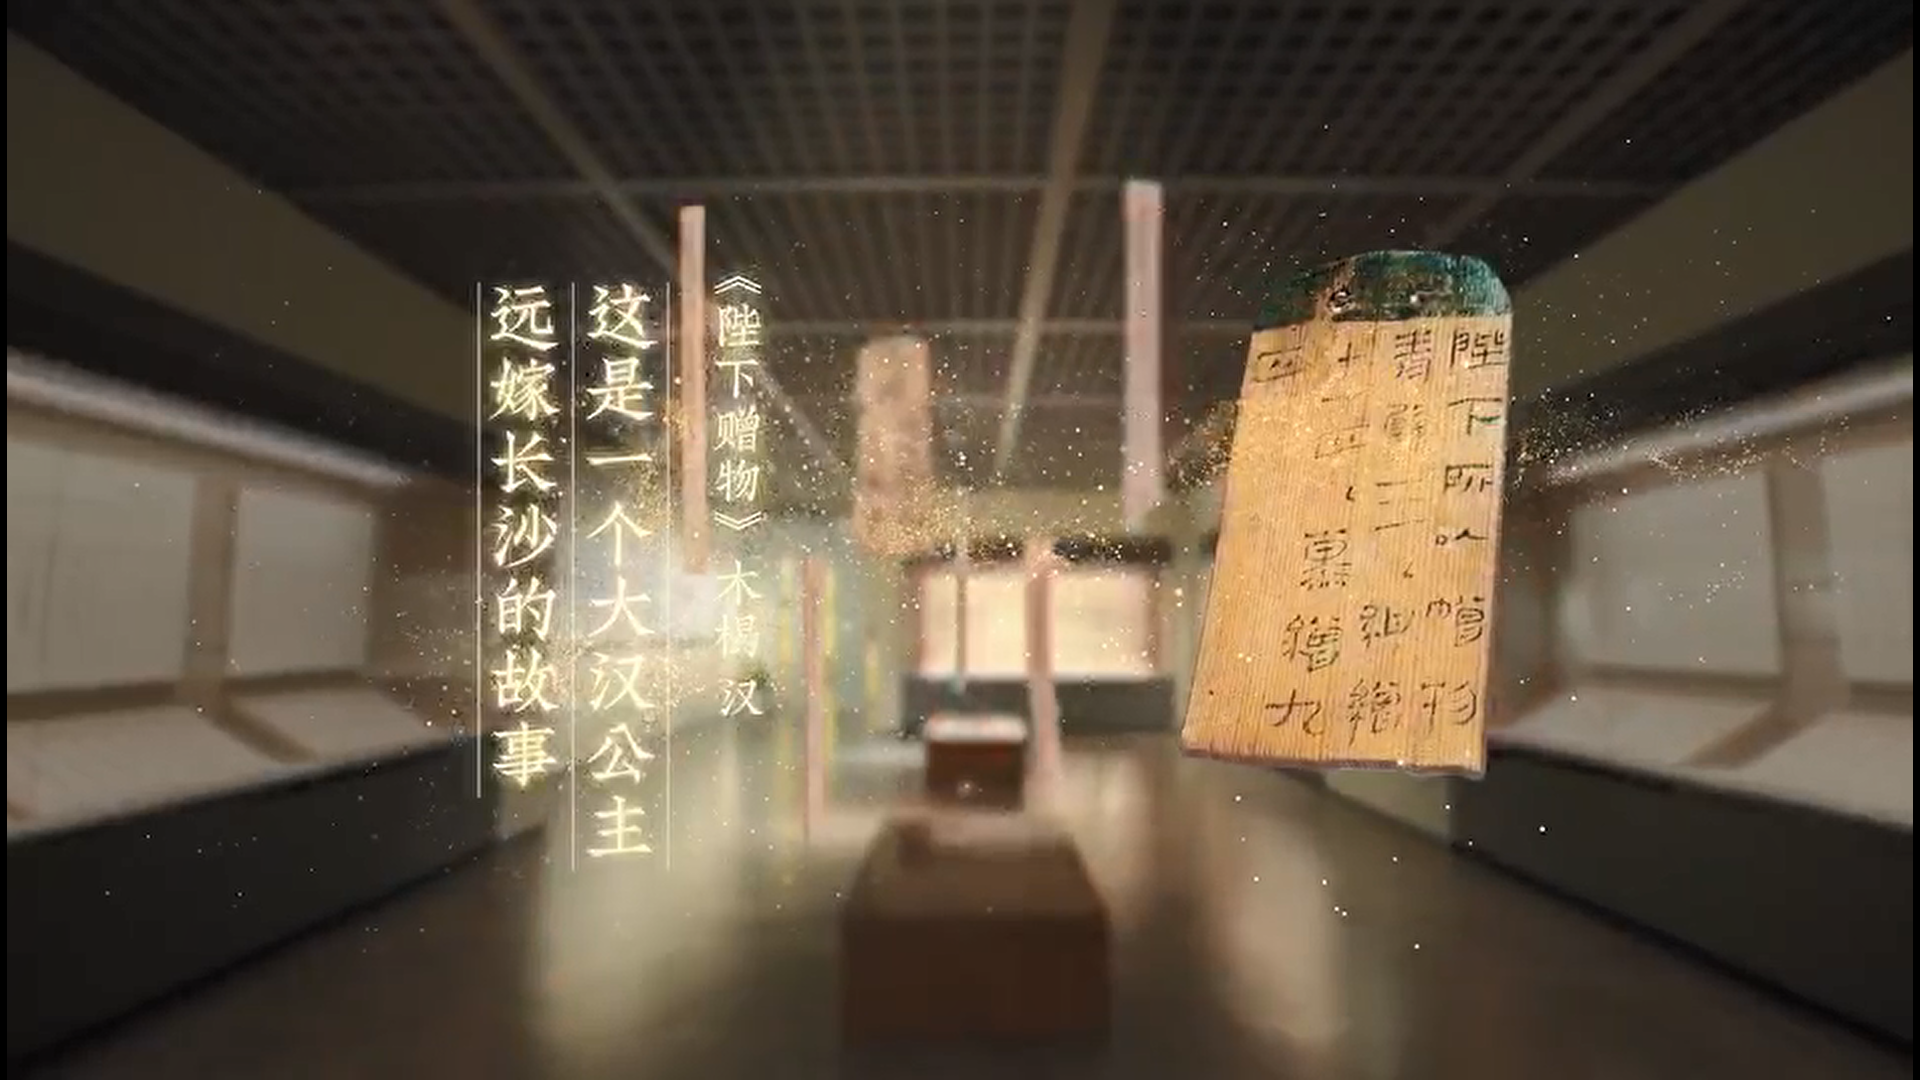 陛下所以贈物
青璧三紺繒
十一匹薰繒九
匹
《陛下赠物》木楬 汉
这是一个大汉公主
远嫁长沙的故事